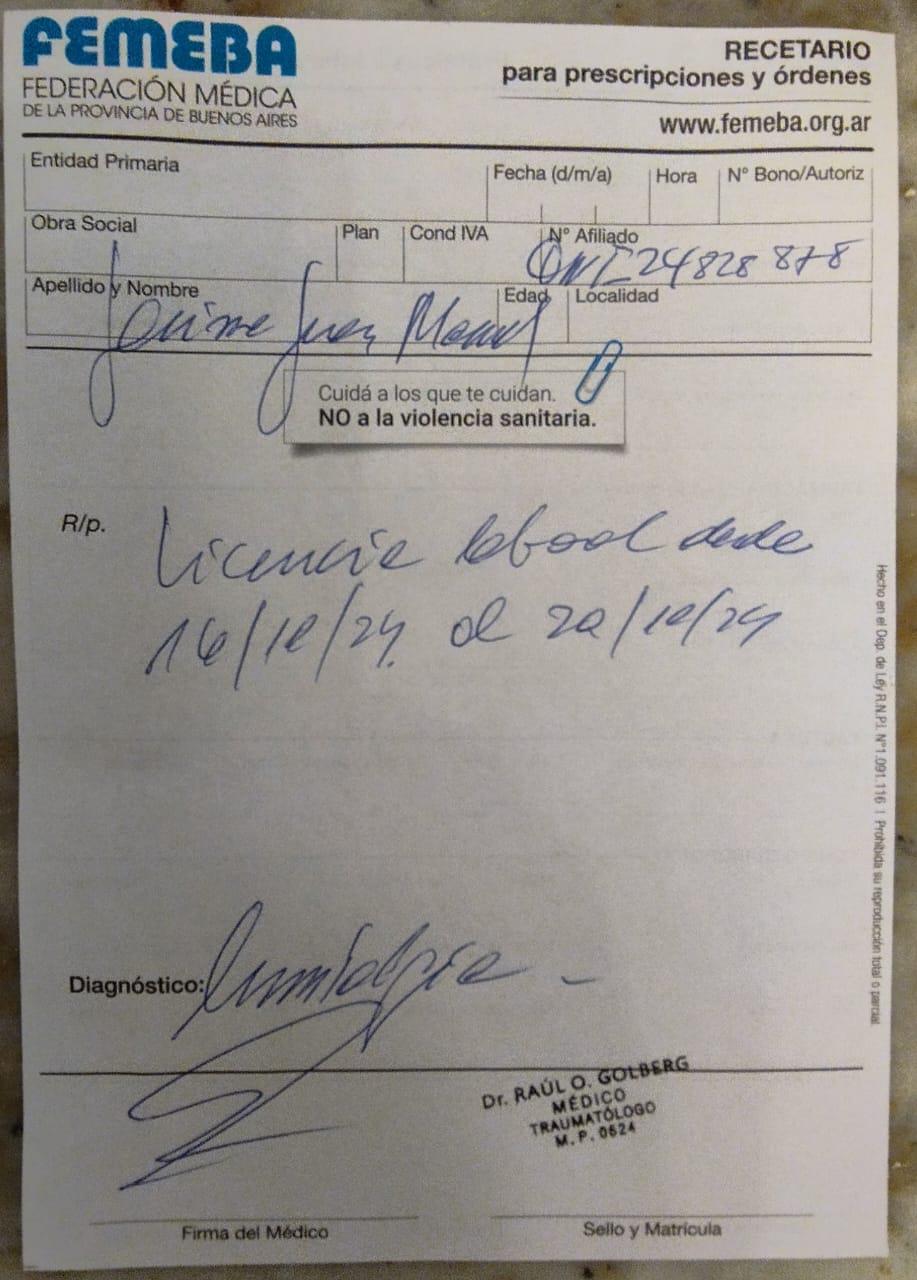 FEMEBA
FEDERACIÓN MÉDICA
DE LA PROVINCIA DE BUENOS AIRES
RECETARIO
para prescripciones y órdenes
www.femeba.org.ar
Entidad Primaria
Fecha (d/m/a)
Hora
N° Bono/Autoriz
Obra Social
Plan
Cond IVA
N° Afiliado
DNI 24828 878
Apellido y Nombre
Jaime Juan Manuel
Edad
Localidad
Cuidá a los que te cuidan.
NO a la violencia sanitaria.
R/p.
Licencia laboral desde
16/10/24 al 20/10/24
Diagnóstico:
Dr. RAÚL O. GOLBERG
MÉDICO
TRAUMATÓLOGO
M.P. 0624
Firma del Médico
Sello y Matrícula
Hecho en el Dep. de Ley R.N.P.I. N°1.091.116 | Prohibida su reproducción total o parcial